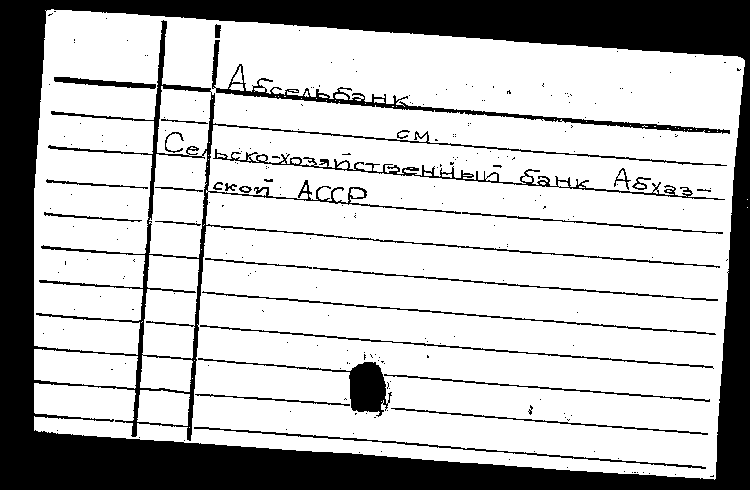 Абсельбанк
см.
Сельско-хозяйственный банк Абхаз-
ской АССР